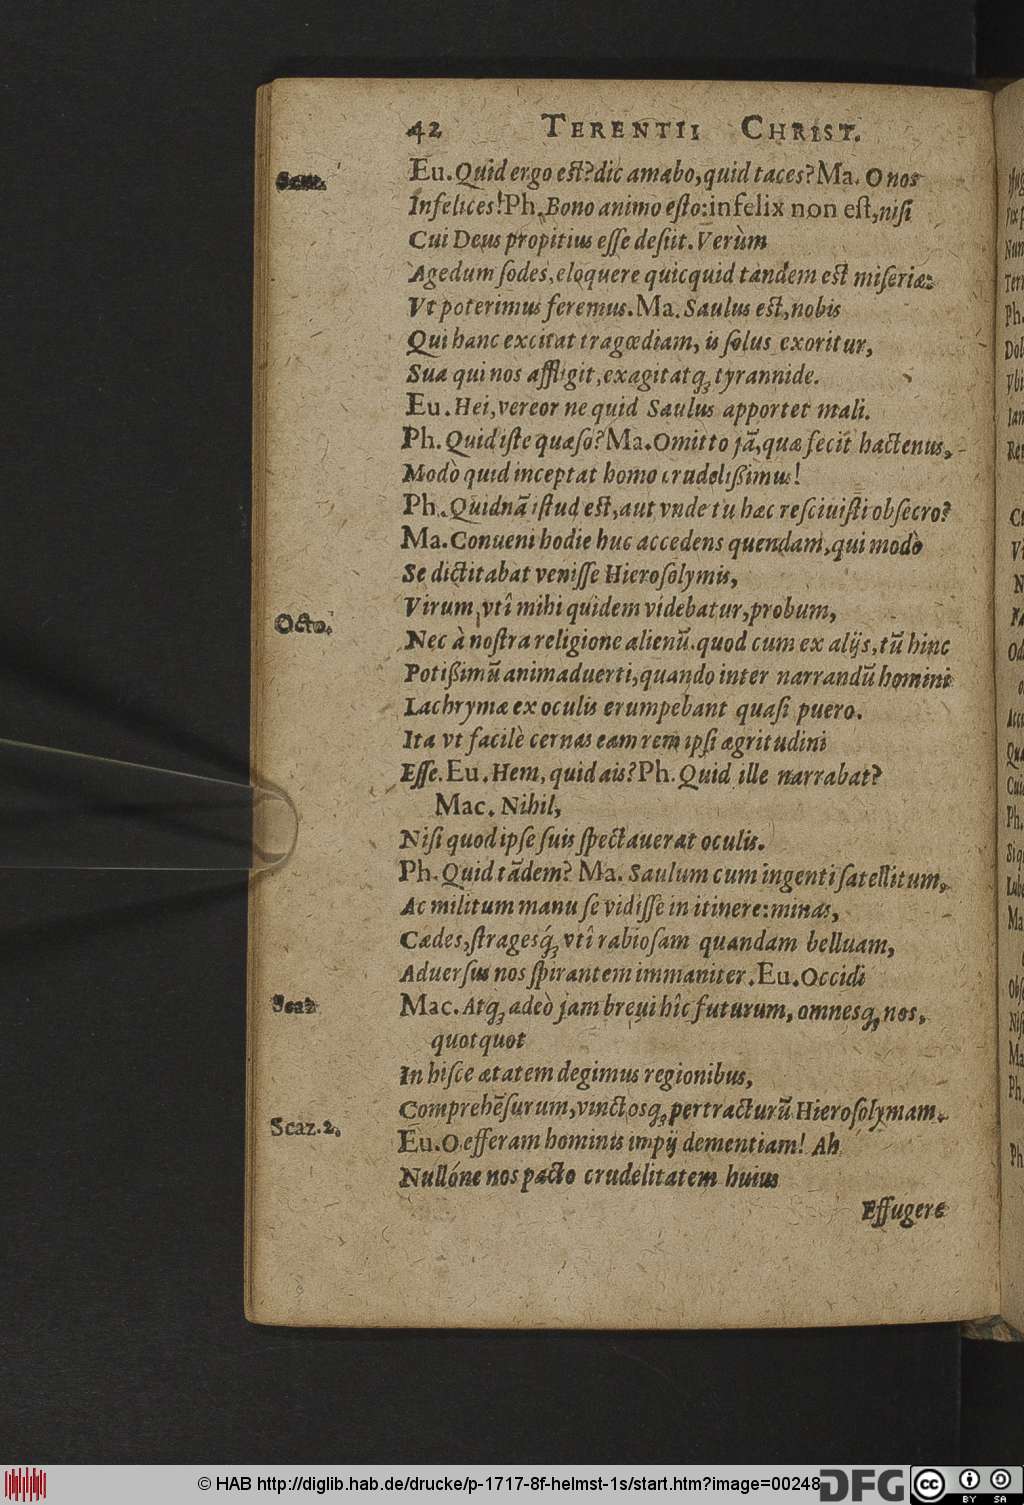 42 TERENTII CHRIST.
Eu. Quid ergo est? dic amabo, quid taces? Ma. O nos
Infelices! Ph. Bono animo esto: infelix non est, nisi
Cui Deus propitius esse desiit. Verùm
Agedum sodes, eloquere quicquid tandem est miseriæ:
Vt poterimus feremus. Ma. Saulus est, nobis
Qui hanc excitat tragœdiam, is solus exoritur,
Sua qui nos affligit, exagitatq́; tyrannide.
Eu. Hei, vereor ne quid Saulus apportet mali.
Ph. Quid iste quæso? Ma. Omitto jã, quæ fecit hactenus,
Modò quid inceptat homo crudelißimus!
Ph. Quidnã istud est, aut vnde tu hæc resciuisti obsecro?
Ma. Conueni hodie huc accedens quendam, qui modò
Se dictitabat venisse Hierosolymis,
Octo.
Virum, vtî mihi quidem videbatur, probum,
Nec à nostra religione alienũ. quod cum ex alijs, tũ hinc
Potißimũ animaduerti, quando inter narrandũ homini
Lachrymæ ex oculis erumpebant quasi puero.
Ita vt facilè cernas eam rem ipsi ægritudini
Esse. Eu. Hem, quid ais? Ph. Quid ille narrabat?
Mac. Nihil,
Nisi quod ipse suis spectauerat oculis.
Ph. Quid tãdem? Ma. Saulum cum ingenti satellitum,
Ac militum manu se vidisse in itinere: minas,
Cædes, stragesq́; vtî rabiosam quandam belluam,
Aduersus nos spirantem immaniter. Eu. Occidi
Scaz.
Mac. Atq; adeò jam breui hîc futurum, omnesq; nos,
quotquot
In hisce ætatem degimus regionibus,
Comprehẽsurum, vinctosq; pertracturũ Hierosolymam.
Scaz. 2.
Eu. O efferam hominis impij dementiam! Ah
Nullóne nos pacto crudelitatem huius
Effugere
© HAB http://diglib.hab.de/drucke/p-1717-8f-helmst-1s/start.htm?image=00248
DFG
cc
BY SA